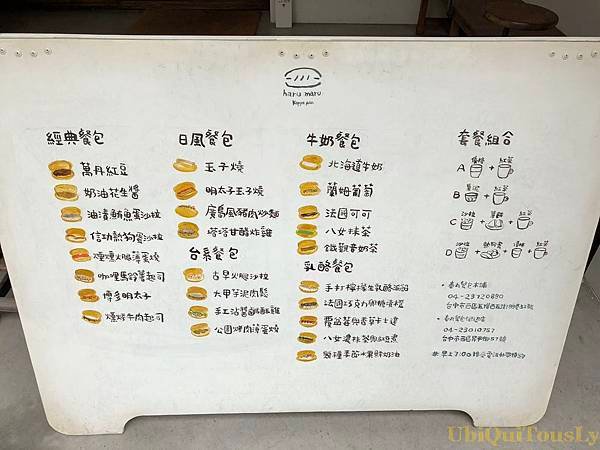 haru maru
Koppe pan
經典餐包
萬丹紅豆
奶油花生醬
油漬鮪魚蛋沙拉
信功熱狗蛋沙拉
煙燻火腿薄蛋燒
咖哩馬鈴薯起司
博多明太子
燻烤牛肉起司
日風餐包
玉子燒
明太子玉子燒
廣島風豬肉炒麵
塔塔甘醋炸雞
台系餐包
古早火腿沙拉
大甲芋泥肉鬆
手工沾醬鹹酥雞
公園烤肉薄蛋燒
牛奶餐包
北海道牛奶
蘭姆葡萄
法國可可
八女抹茶
鐵觀音奶茶
乳酪餐包
手打檸檬生乳酪
法國巧克力
覆盆莓與香草卡士達
八女濃抹茶與紅豆煮
套餐組合
A 紅茶
B
C 沙拉 紅茶
D 沙拉 紅茶
04-23720890
04-23010757
UbiQuiTousLy